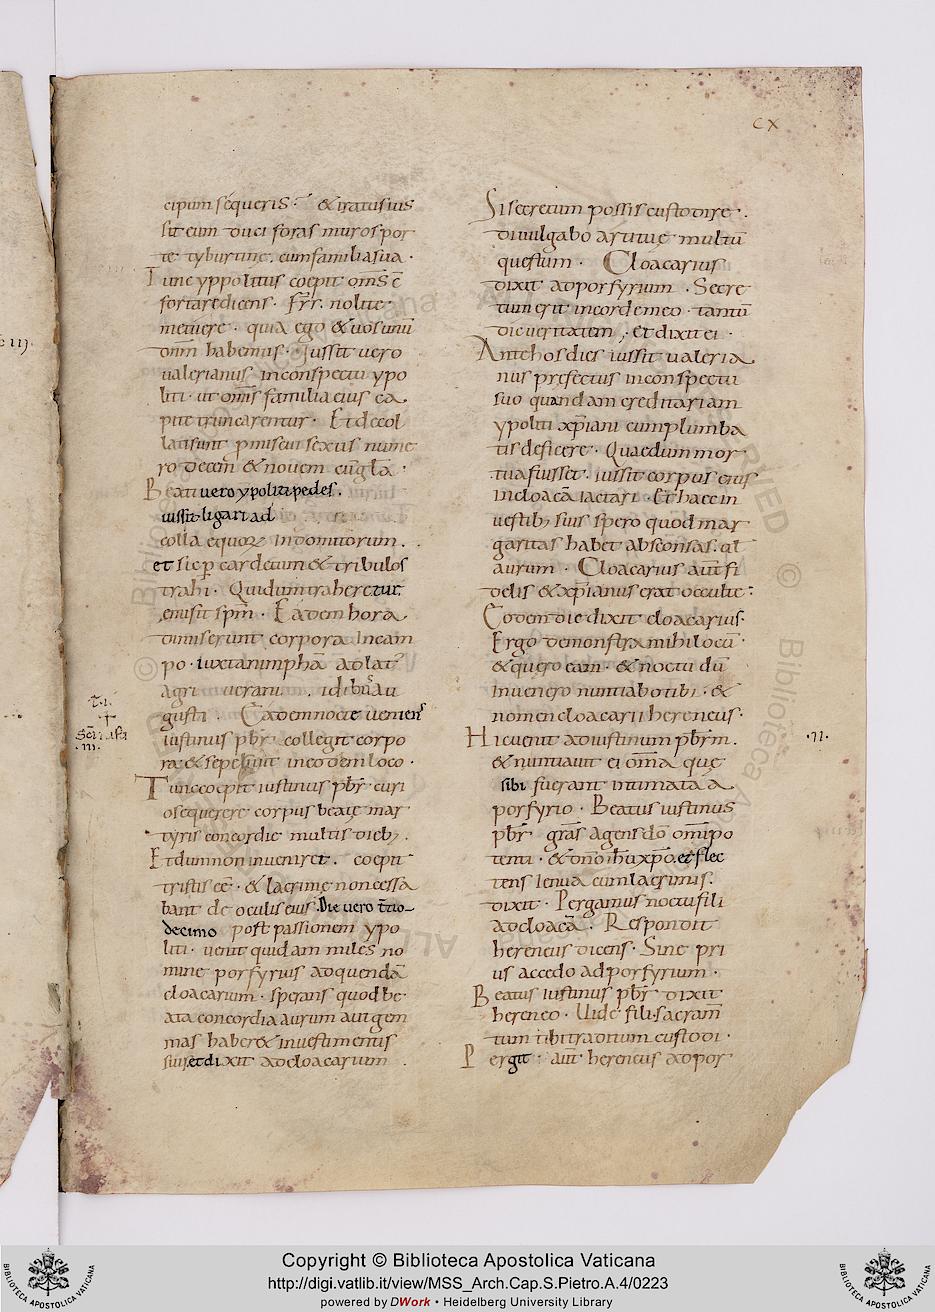 CX
cipum sequeris · & iratus ius
sit eum duci foras muros por
te tyburtinę cum familia sua ·
Tunc yppolitus coepit om̄s c̄
fortare dicens · fr̄r nolite ·
metuere · quia ego & uos unū
dnm̄ habemus · Iussit uero
ualerianus in conspectu ypo
liti · ut om̄s familia eius ca
pite truncarentur · Et decol
lati sunt promiscui sexus nume
ro decem & nouem cū gl̄a ·
Beati uero ypoliti pedes ·
iussit ligari ad
colla equorꝝ indomitorum ·
et sic ꝑ cardetum & tribulos
trahi · Qui dum traheretur
emisit sp̄m · Eadem hora
dimiserunt corpora In cam
po · iuxta nimphā ad lat᾽
agri uerani · idib᾽ au
gusti · Eadem nocte ueniens
iustinus pb̄r collegit corpo
ra & sepeliuit in eodem loco ·
Tunc coepit iustinus pb̄r curi
ose querere corpus beatę mar
tyris concordię multis dieb; ·
Et dum non inueniret · coepit
tristis eē · & lacrimę non cessa
bant de oculis eius · Die uero t̄tio
decimo post passionem ypo
liti · uenit quidam miles no
mine porfyrius ad quendā
cloacarium · sperans quod be
ata concordia aurum aut gem
mas haber& in uestimentis
suis et dixit ad cloacarium
Si secretum possis custodire ·
diuulgabo artitię multū
questum · Cloacarius
dixit ad porfyrium · Secre
tum erit in corde meo · tantū
dic ueritatem ; Et dixit ei ·
Ante hos dies iussit ualeria
nus pręfectus in conspectu
suo quandam creditariam
ypoliti xp̄iani cum plumba
tis deficere · Quae dum mor
tua fuisset · iussit corpus eius
in cloacā iactari · Et haec in
uestib; suis spero quod mar
garitas habet absconsas · aut
aurum · Cloacarius aut̄ fi
delis & xp̄ianus erat occulte :
Eodem die dixit cloacarius ·
Ergo demonstra mihi locū ·
& quęro eam · & noctu dū
Inuenero nuntiabo tibi · &
nomen cloacarii hereneus ·
Hic uenit ad iustinum pb̄rm̄ ·
& nuntiauit ei om̄a quę
sibi fuerant intimata a
porfyrio · Beatus iustinus
pb̄r gr̄as agens dō om̄ipo
tenti · & dnō ihū xp̄o · et flec
tens Ienua cum lacrimis ·
dixit · Pergamus noctu fili
ad cloacā · Respondit
hereneus dicens · Sine pri
us accedo ad porfyrium ·
Beatus iustinus pb̄r dixit
hereneo · Uide fili · sacram̄
tum tibi traditum custodi ·
Pergit · aut̄ hereneus ad por
· II ·
Copyright © Biblioteca Apostolica Vaticana
http://digi.vatlib.it/view/MSS_Arch.Cap.S.Pietro.A.4/0223
powered by DWork • Heidelberg University Library
BIBLIOTECA APOSTOLICA VATICANA
BIBLIOTECA APOSTOLICA VATICANA